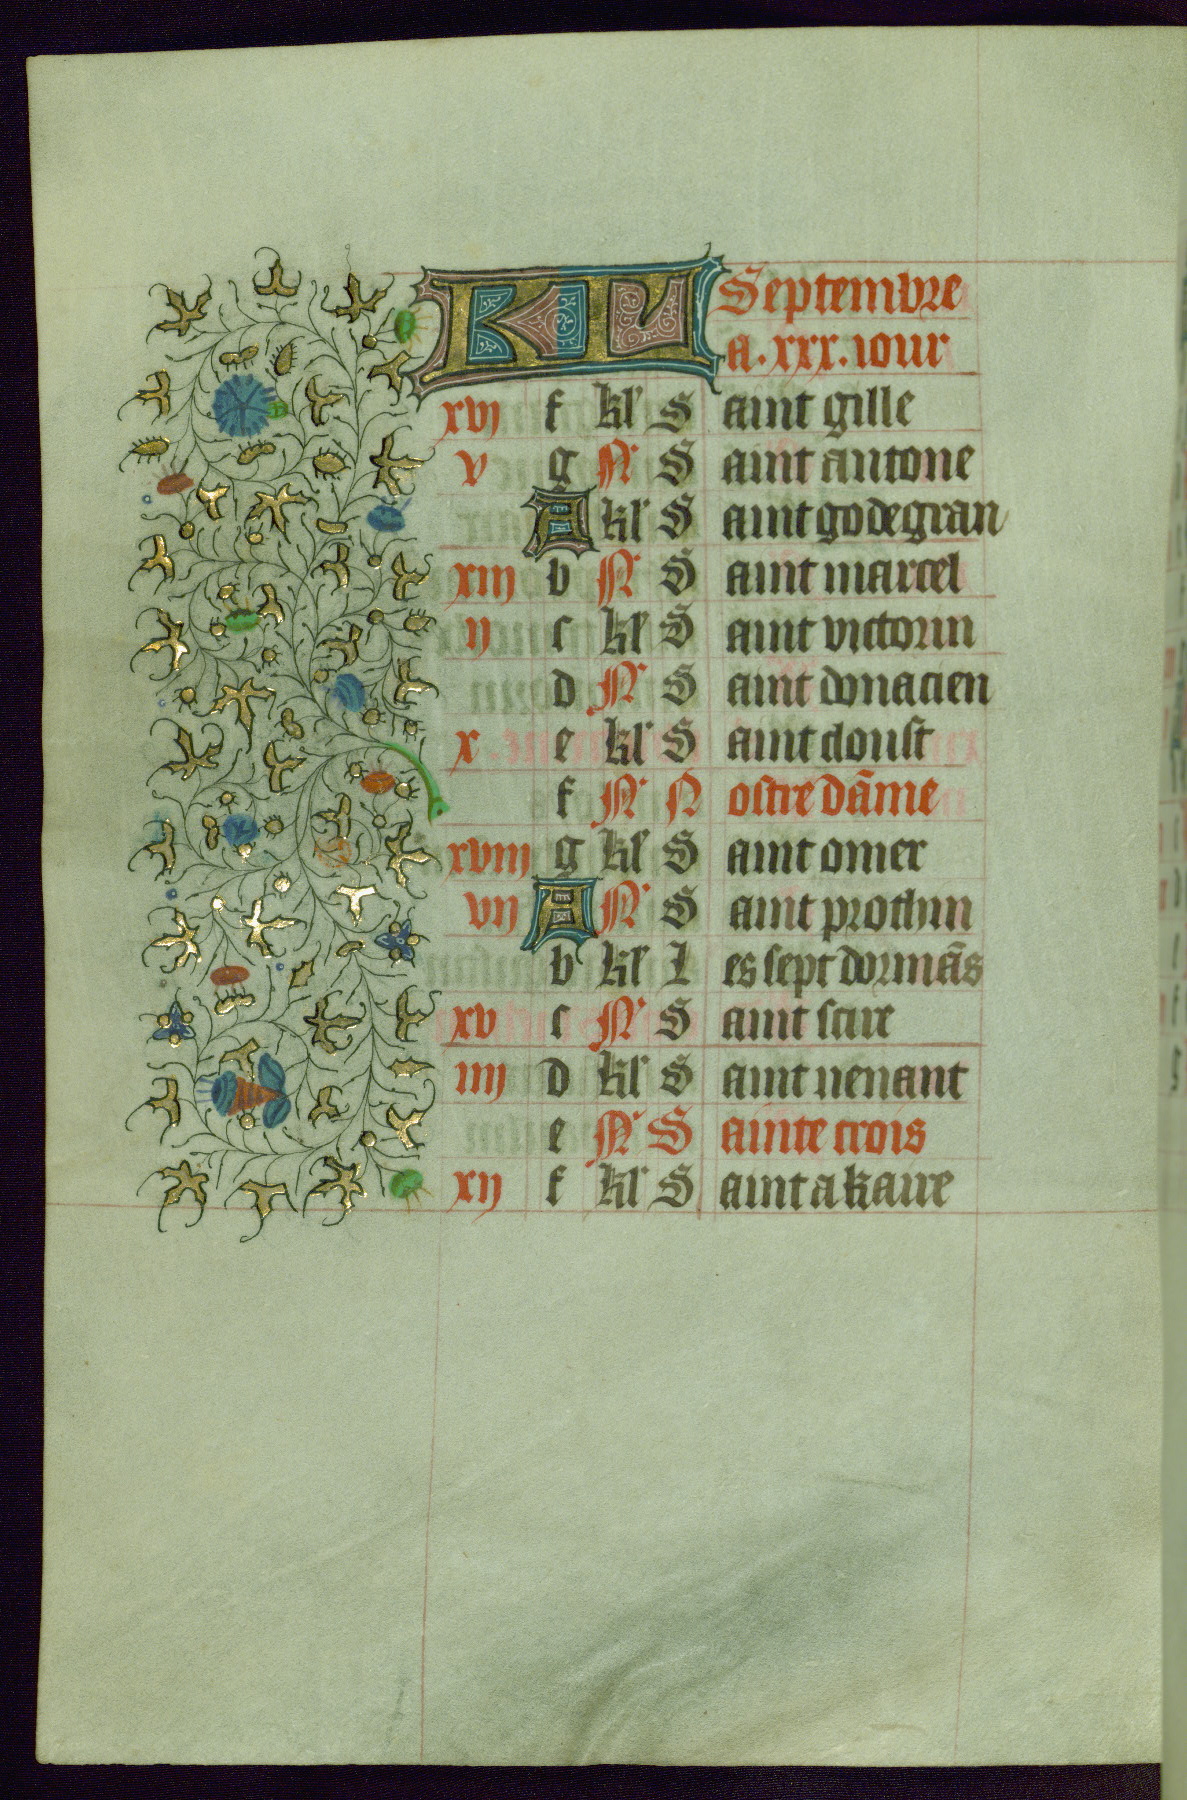 KL Septembre
a. xxx. iour
xvj f kl' S aint gille
v g N' S aint antone
A kl' S aint godegran
xiij b N' S aint marcel
ij c kl' S aint victorin
d N' S aint donacien
x e kl' S aint cloust
f N' N ostre dāme
xviij g kl' S aint omer
vij A N' S aint prothin
b kl' L es sept dormās
xv c N' S aint scire
iiij d kl' S aint uenant
e N' S ainte crois
xij f kl' S aint akaire